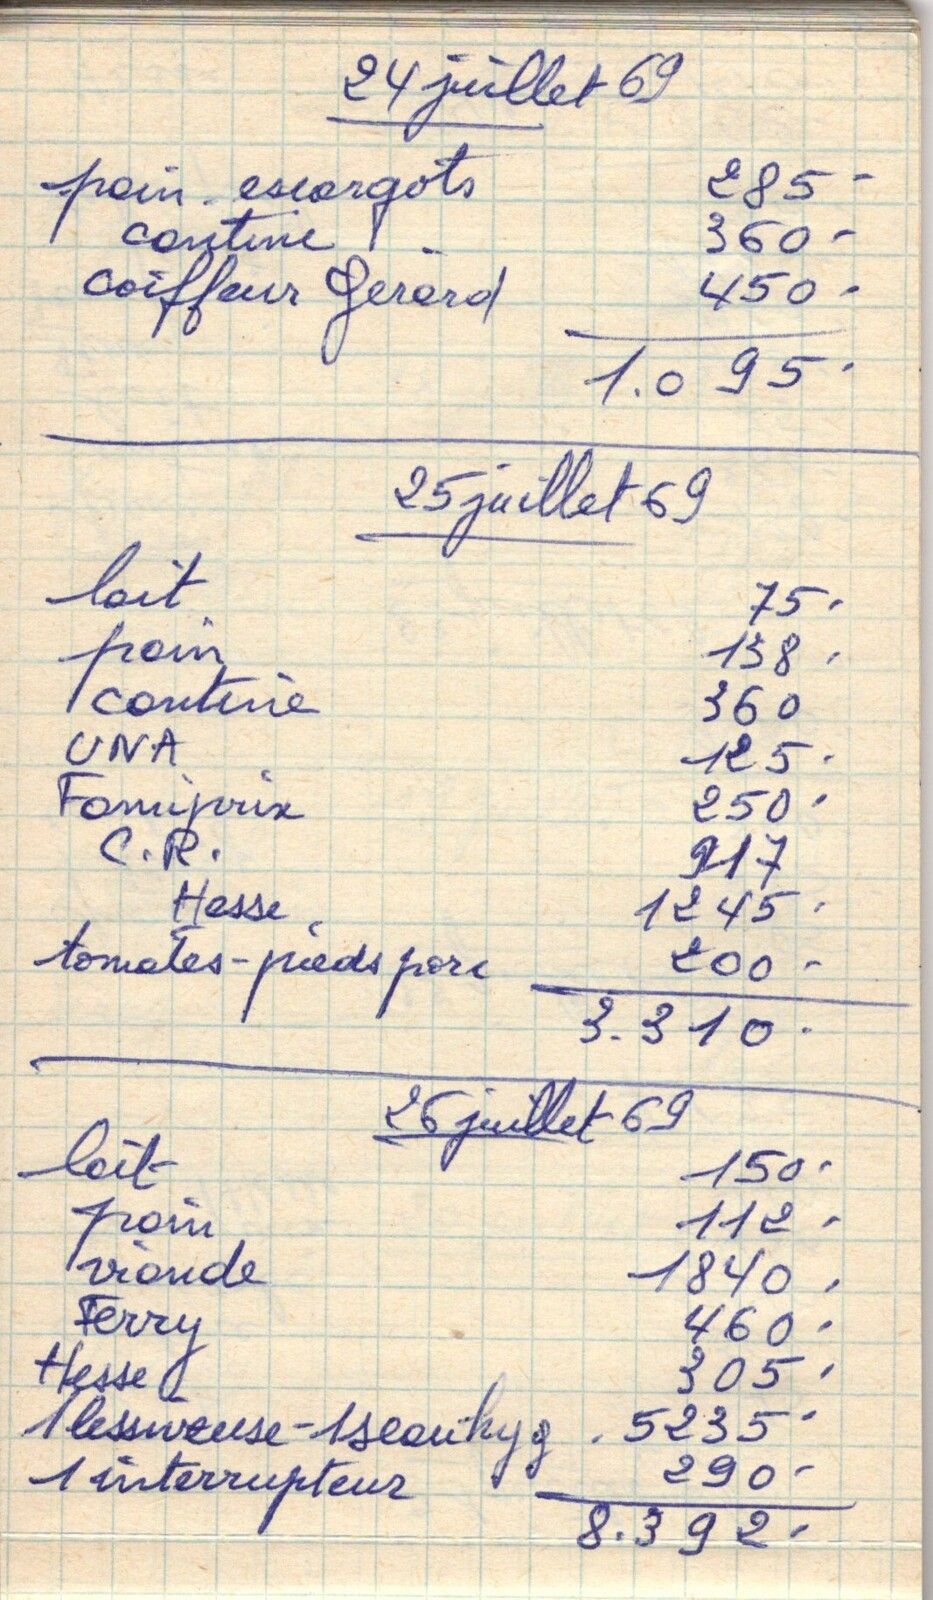 24 juillet 69
pain - escargots 285 -
cantine 360 -
coiffeur Gérard 450 -
1.095 -
25 juillet 69
lait 75 -
pain 138 -
cantine 360
UNA 125 -
Famiprix 250 -
C.R. 917
Hesse 1245 -
tomates - pieds porc 200 -
3.310 -
26 juillet 69
lait 150 -
pain 112 -
viande 1840 -
Ferry 460 -
Hesse 305 -
1 lessiveuse - 1 seau hyg. 5235 -
1 interrupteur 290 -
8.392 -